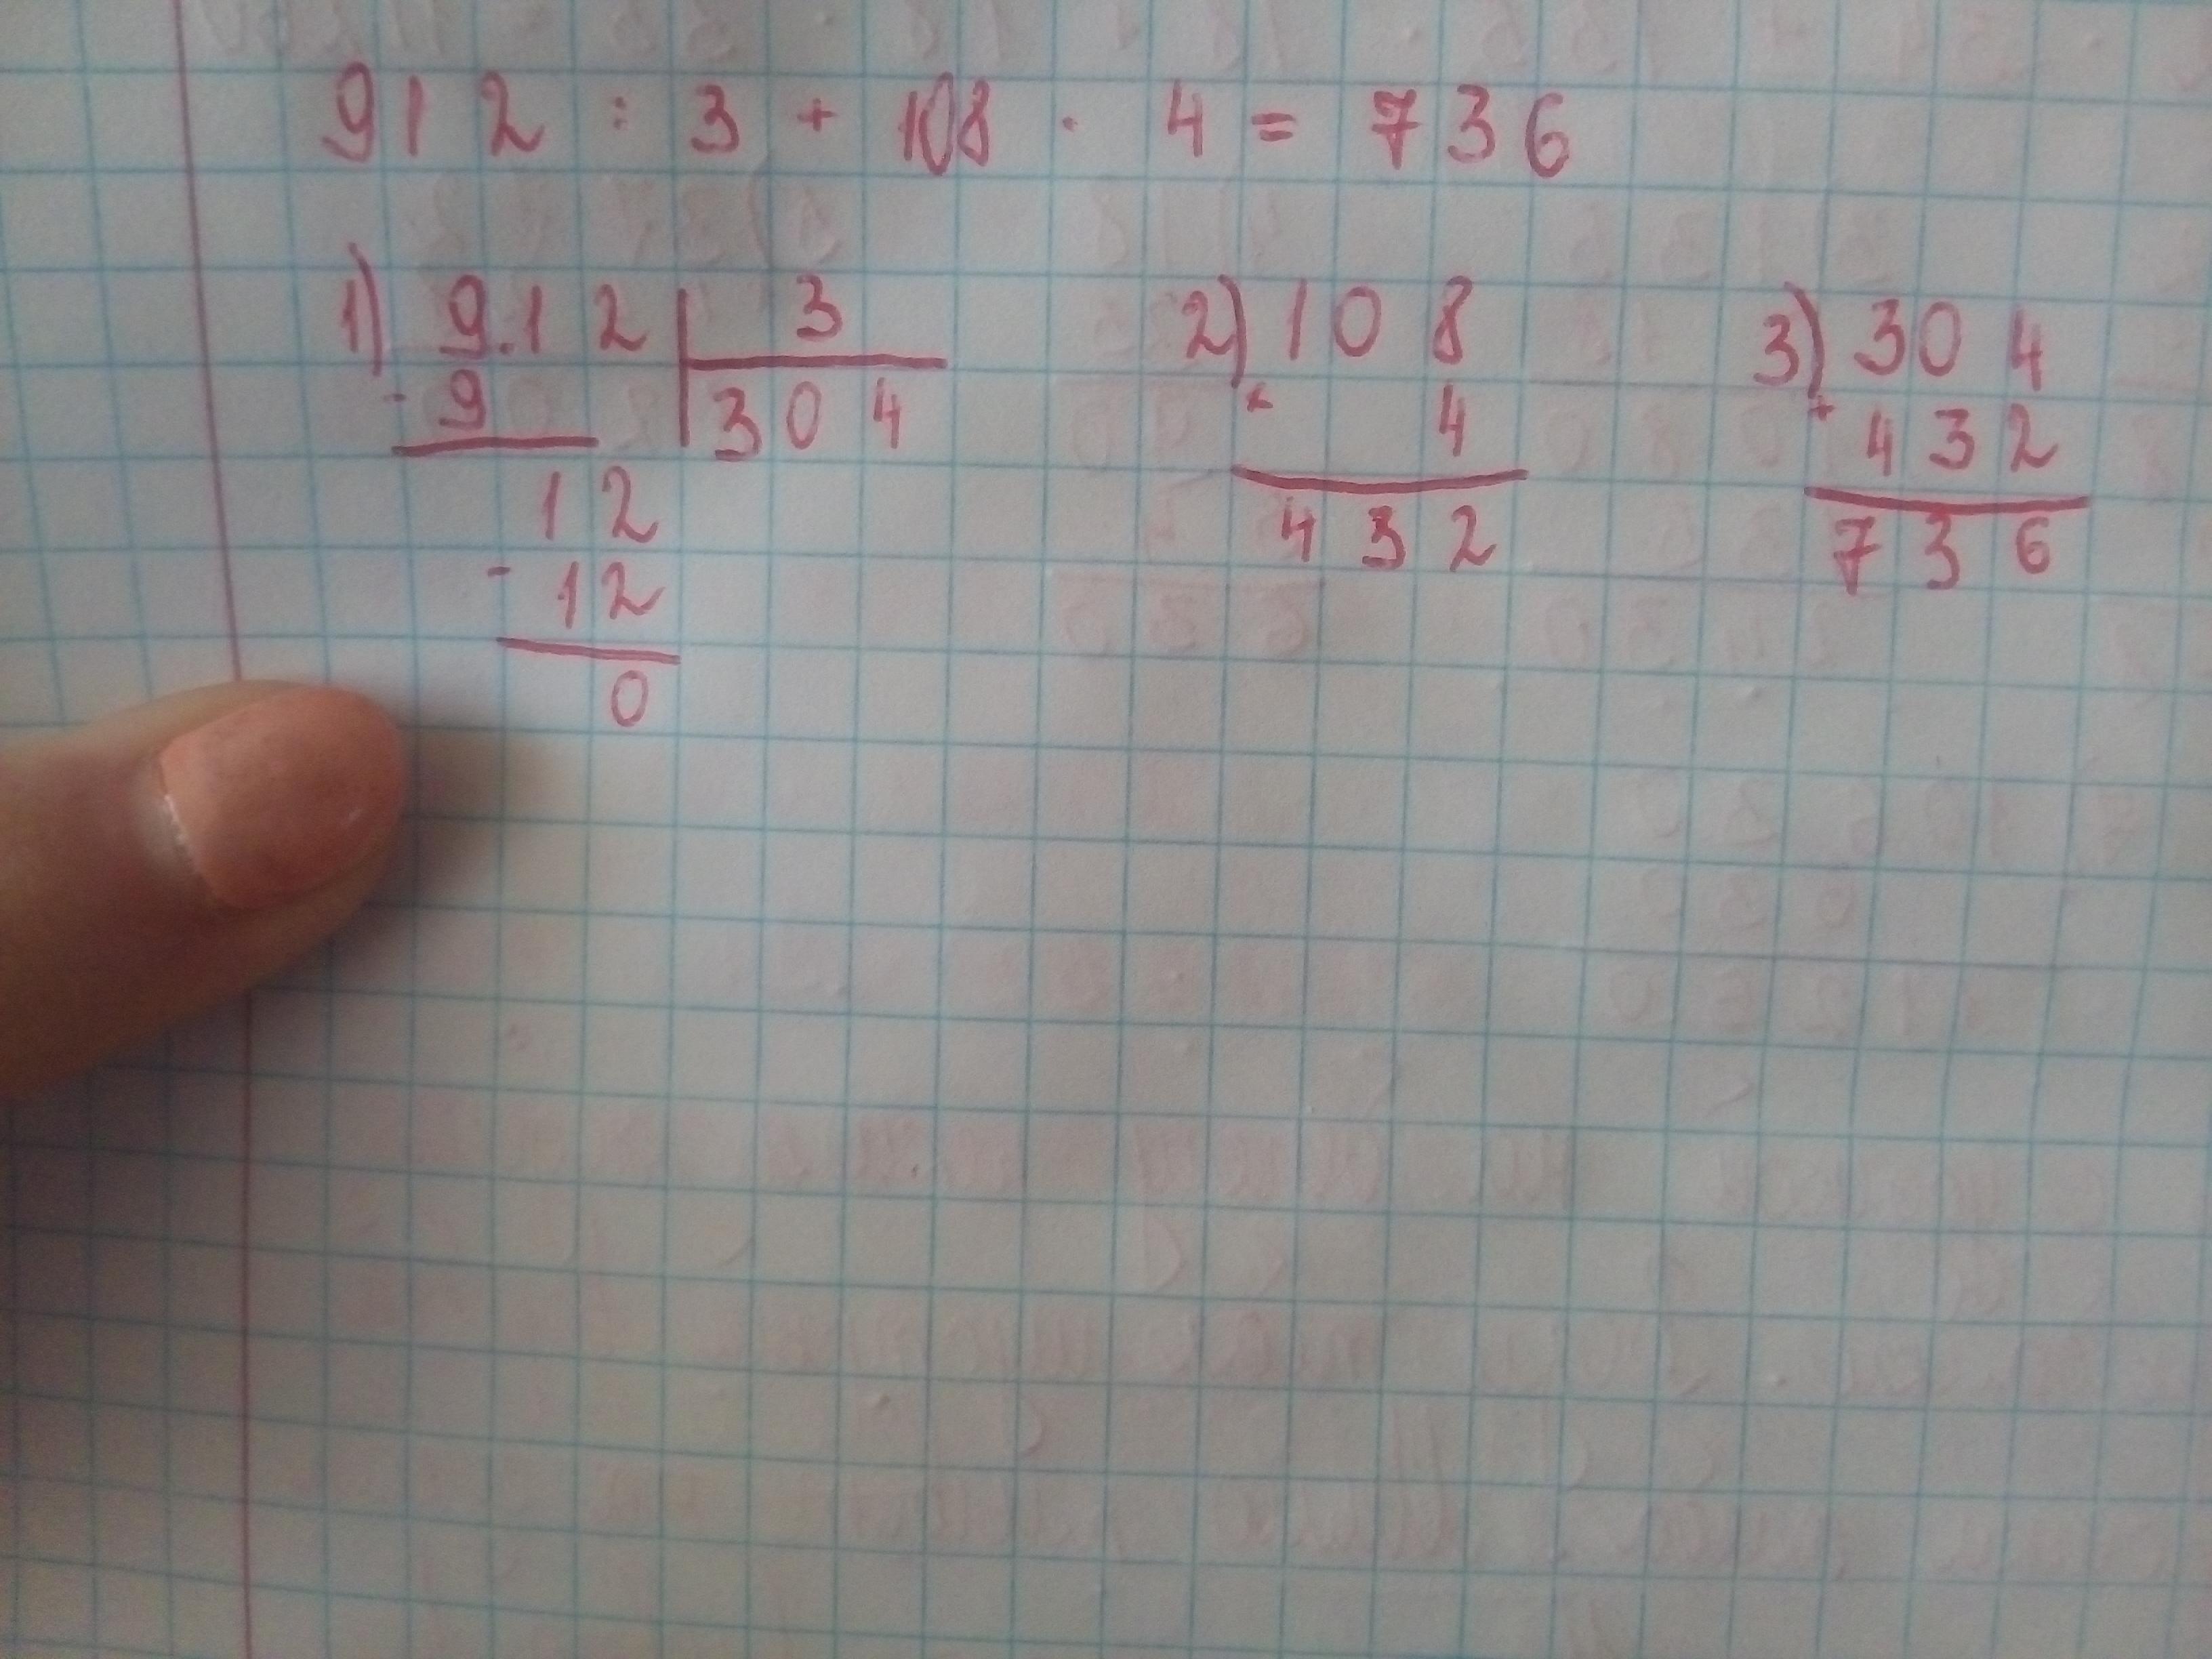 912 : 3 + 108 · 4 = 736
1) 912 | 3
- 9 | 304
12
- 12
0
2) 108
× 4
432
3) 304
+ 432
736